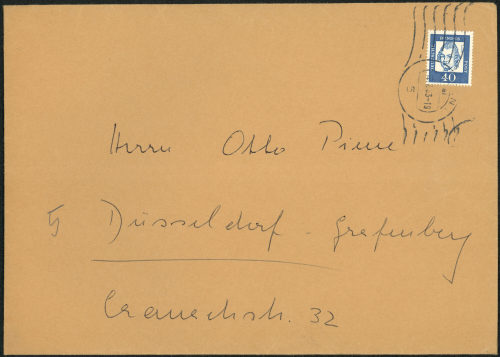 40
Herrn Otto Piene
Düsseldorf - Grafenberg
Cranachstr. 32